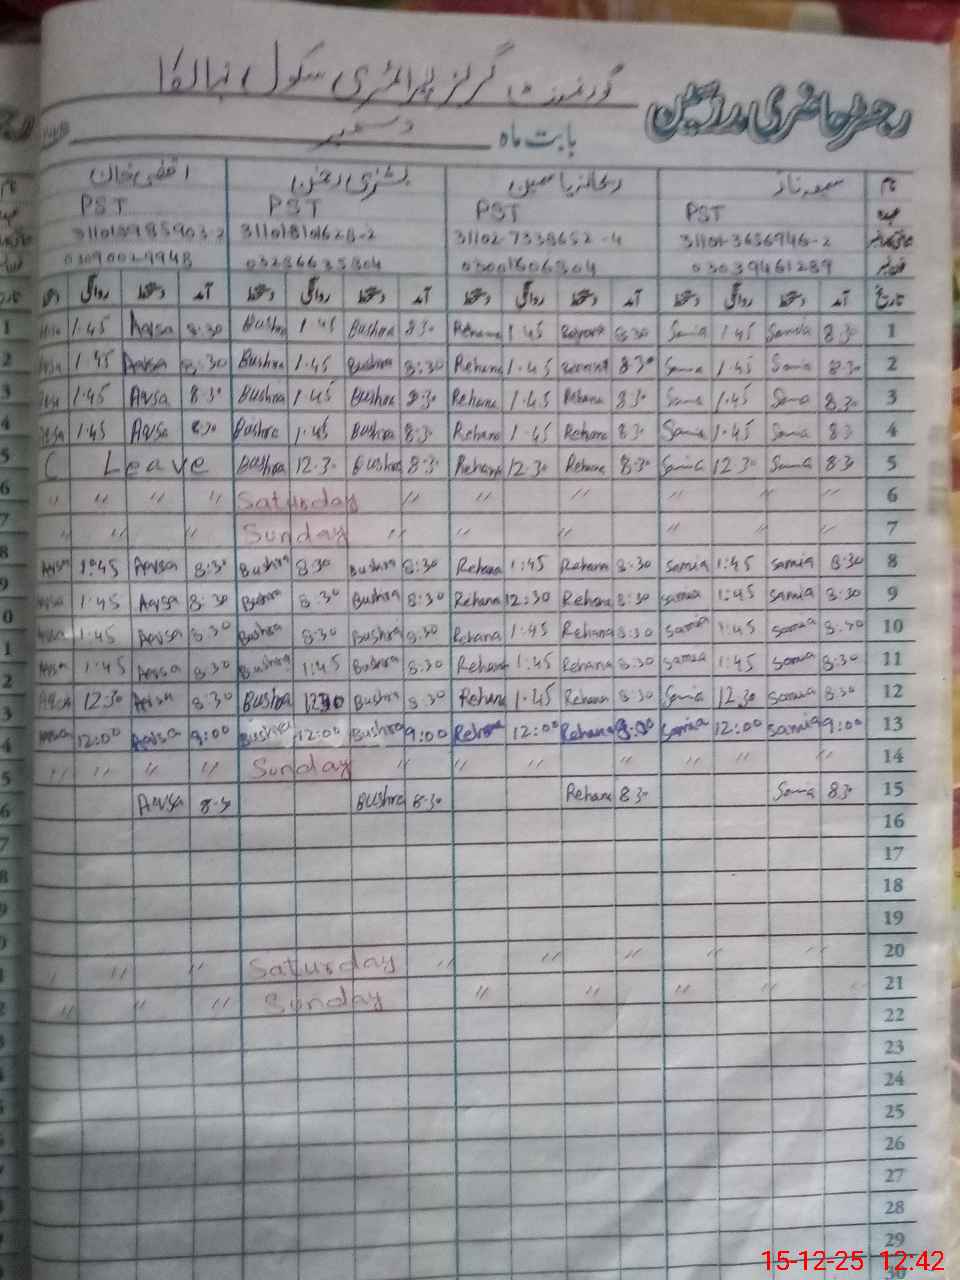 رجسٹر حاضری مدرسین گورنمنٹ گرلز پرائمری سکول
بابت ماہ دسمبر
نام سمیعہ ناز ریحانہ یاسمین بشریٰ رحمن اقصیٰ خان
عہدہ PST PST PST PST
31101-3656946-2 31102-7338652-4 311018101628-2
03039461289 03001606304 03286635304 03090029948
تاریخ آمد دستخط روانگی دستخط آمد دستخط روانگی دستخط آمد دستخط روانگی دستخط آمد دستخط روانگی دستخط
1 8:30 Samia 1:45 Samia 8:30 1:45 Rehana 8:30 Bushra 1:45 Bushra 8:30 Aqsa 1:45
2 8:30 Samia 1:45 Samia 8:30 1:45 Rehana 8:30 Bushra 1:45 Bushra 8:30 Aqsa 1:45
3 8:30 Samia 1:45 Samia 8:30 Rehana 1:45 Rehana 8:30 Bushra 1:45 Bushra 8:30 Aqsa 1:45
4 8:30 Samia 1:45 Samia 8:30 Rehana 1:45 Rehana 8:30 Bushra 1:45 Bushra 8:30 Aqsa 1:45
5 8:30 Samia 12:30 Samia 8:30 Rehana 12:30 Rehana 8:30 Bushra 12:30 Bushra C Leave
6 " " " " " " Saturday " " " "
7 " " " " " " Sunday " " "
8 8:30 Samia 1:45 Samia 8:30 Rehana 1:45 Rehana 8:30 Bushra 8:30 Bushra 8:30 Aqsa 1:45 Aqsa
9 8:30 Samia 1:45 Samia 8:30 Rehana 12:30 Rehana 8:30 Bushra 8:30 Bushra 8:30 Aqsa 1:45 Aqsa
10 8:30 Samia 1:45 Samia 8:30 Rehana 1:45 Rehana 8:30 Bushra 8:30 Bushra 8:30 Aqsa 1:45 Aqsa
11 8:30 Samia 1:45 Samia 8:30 Rehana 1:45 Rehana 8:30 Bushra 1:45 Bushra 8:30 Aqsa 1:45 Aqsa
12 8:30 Samia 12:30 Samia 8:30 Rehana 1:45 Rehana 8:30 Bushra 12:30 Bushra 8:30 Aqsa 12:30 Aqsa
13 9:00 Samia 12:00 Samia 9:00 Rehana 12:00 Rehana 9:00 Bushra 12:00 Bushra 9:00 Aqsa 12:00 Aqsa
14 " " " " " " Sunday " " " "
15 8:30 Samia 8:30 Rehana 8:30 Bushra 8:30 Aqsa
16
17
18
19
20 " " " " " Saturday " " "
21 " " " " " Sunday " " "
22
23
24
25
26
27
28
29
30
15-12-25 12:42